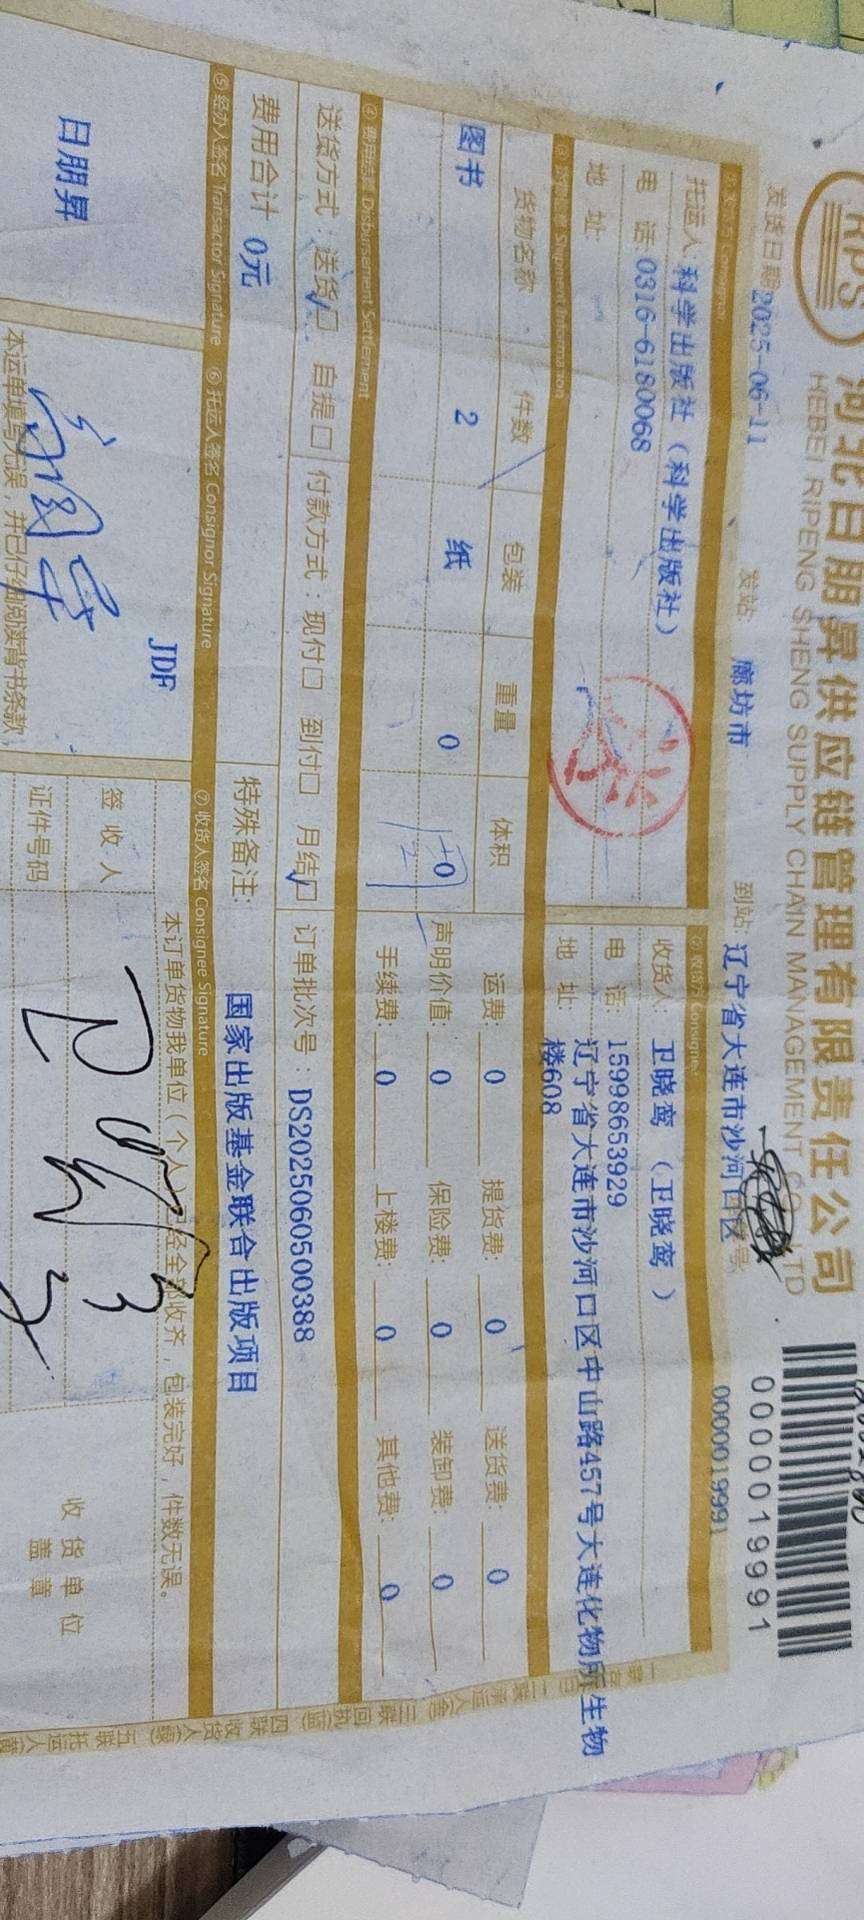 RPS
河北日朋昇供应链管理有限责任公司
HEBEI RIPENG SHENG SUPPLY CHAIN MANAGEMENT CO., LTD
0000019991
发货日期 2025-06-11 发站: 廊坊市 到站: 辽宁省大连市沙河口区 号 0000019991
Consignor
② 收货方 Consignee
托运人: 科学出版社(科学出版社)
收货人: 卫晓鸾(卫晓鸾)
电 话: 0316-6180068
电 话: 15998653929
地 址:
地 址: 辽宁省大连市沙河口区中山路457号大连化物所生物楼608
③ Shipment Information
货物名称 件数 包装 重量 体积
图书 2 纸 0 0
运费: 0 提货费: 0 送货费: 0
声明价值: 0 保险费: 0 装卸费: 0
手续费: 0 上楼费: 0 其他费: 0
④ 费用结算 Disbursement Settlement
送货方式: 送货☑ 自提□ 付款方式: 现付□ 到付□ 月结☑ 订单批次号: DS2025060500388
费用合计 0元 特殊备注: 国家出版基金联合出版项目
⑤ 经办人签名 Transactor Signature ⑥ 托运人签名 Consignor Signature ⑦ 收货人签名 Consignee Signature
日朋昇
JDF
本运单填写无误,并已仔细阅读背书条款
本订单货物我单位(个人)已经全部收齐,包装完好,件数无误。
签收人
证件号码
收货单位
盖章